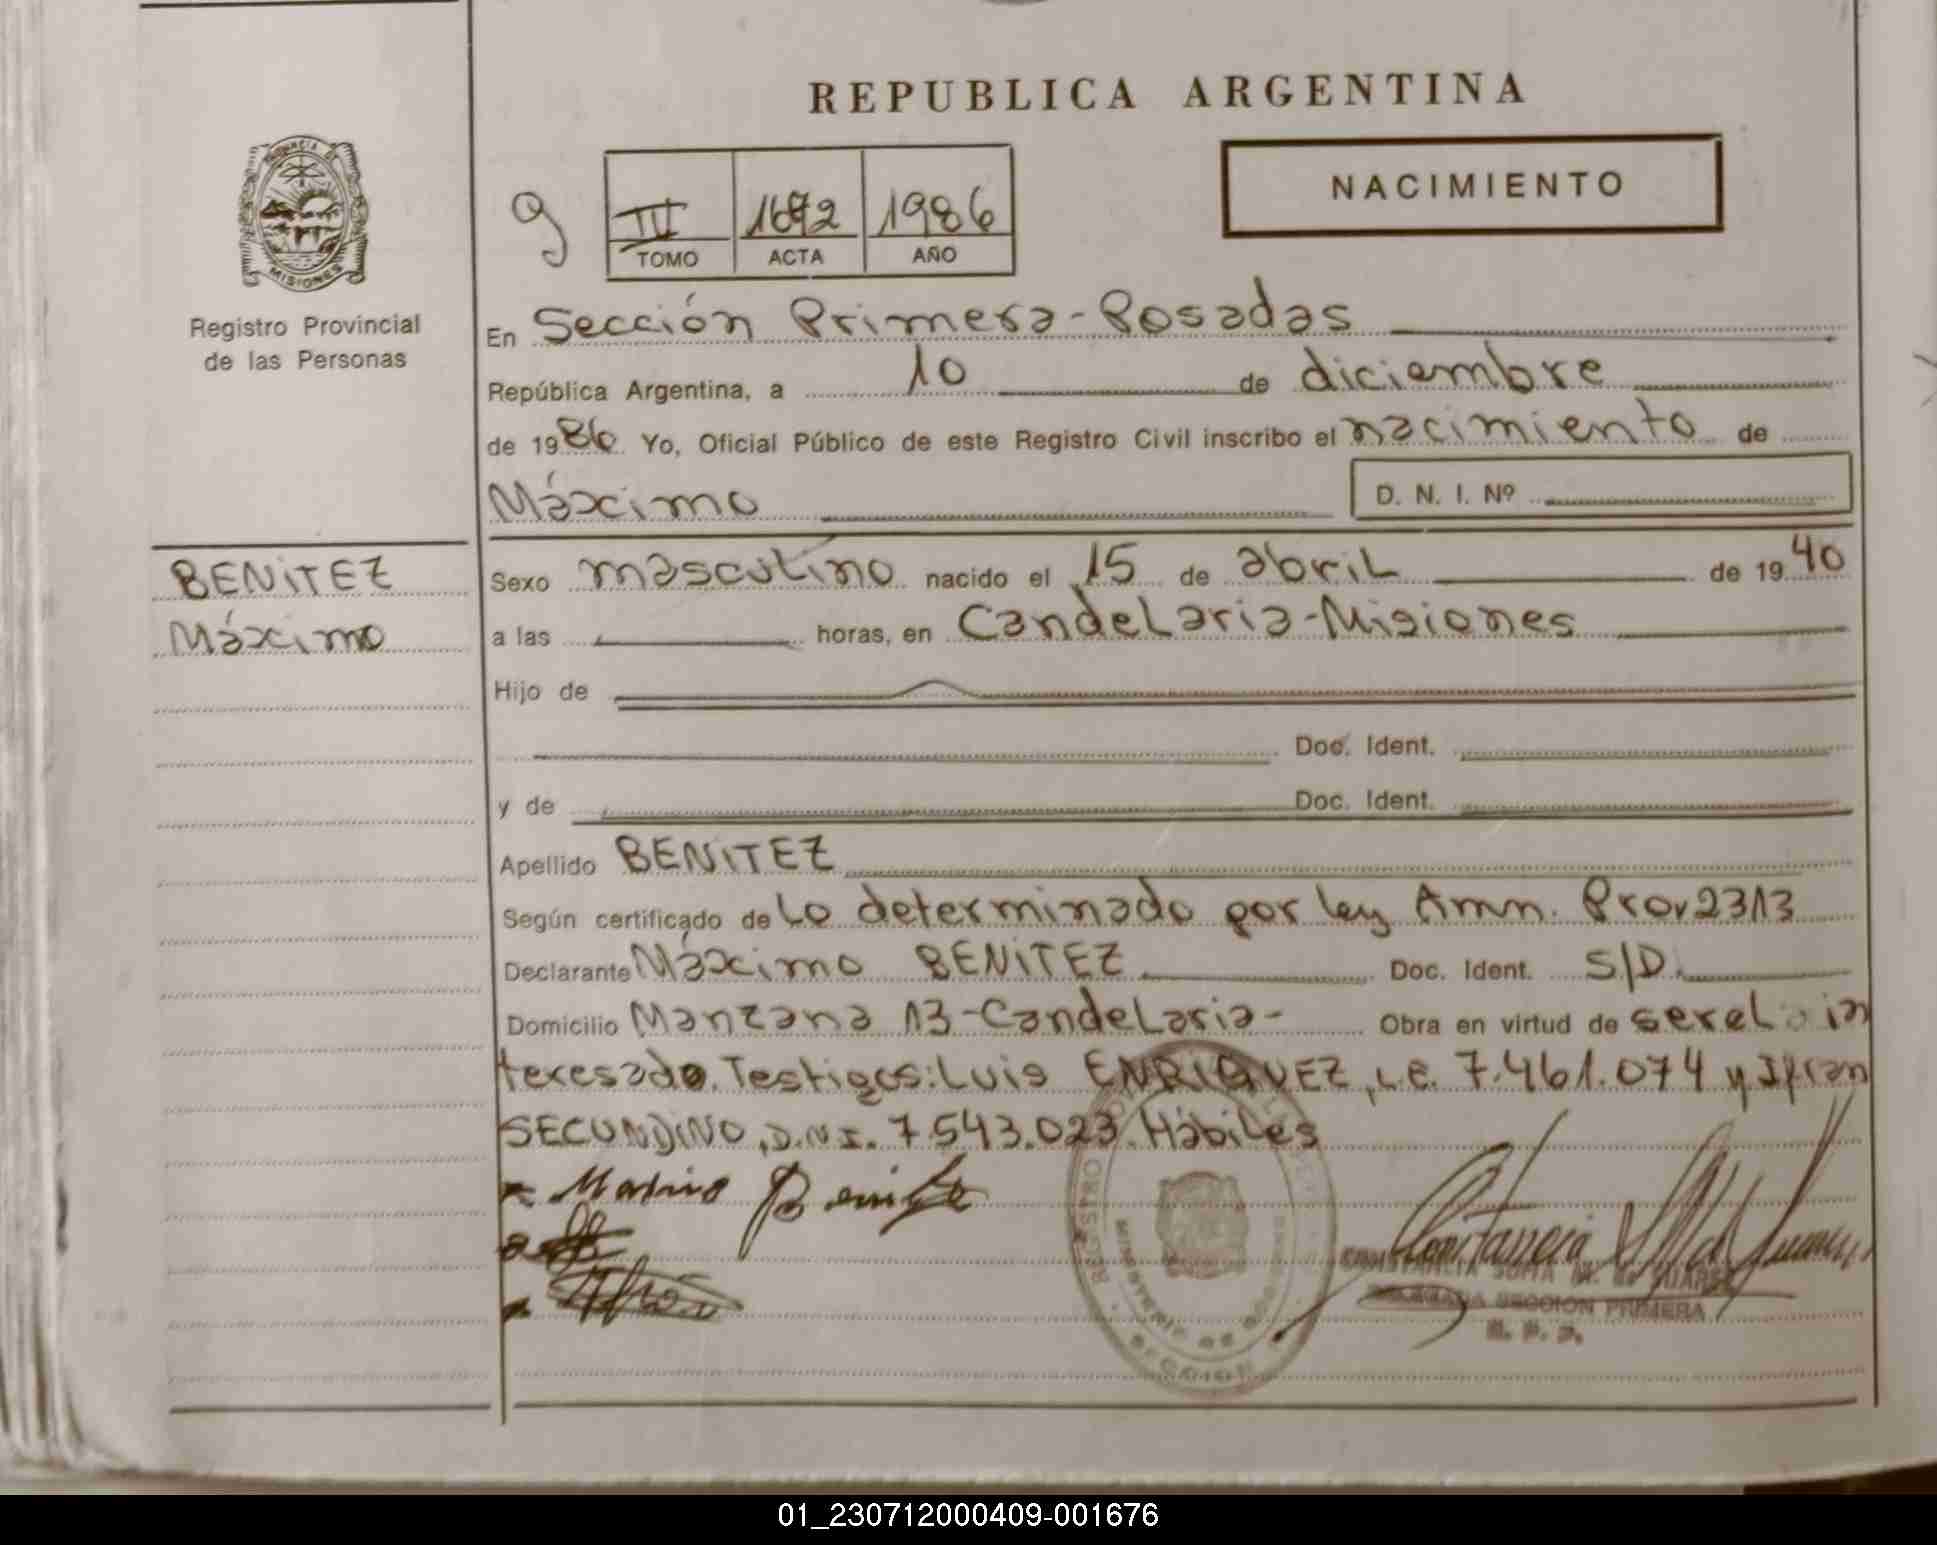 REPUBLICA ARGENTINA
NACIMIENTO
PROVINCIA DE
MISIONES
Registro Provincial
de las Personas
9
III 1692 1986
TOMO ACTA AÑO
En Sección Primera-Posadas
República Argentina, a 10 de diciembre
de 1986 Yo, Oficial Público de este Registro Civil inscribo el nacimiento de
Máximo D. N. I. Nº
BENITEZ
Máximo
Sexo masculino nacido el 15 de abril de 1940
a las horas, en Candelaria-Misiones
Hijo de
Doc. Ident.
y de Doc. Ident.
Apellido BENITEZ
Según certificado de Lo determinado por ley Amn. Prov 2313
Declarante Máximo BENITEZ Doc. Ident. S/D
Domicilio Manzana 13-Candelaria- Obra en virtud de ser el in
teresado. Testigos: Luis ENRIQUEZ, L.E. 7.461.074 y Ifran
SECUNDINO, D.N.I. 7.543.023. Hábiles
SECCION PRIMERA
01_230712000409-001676